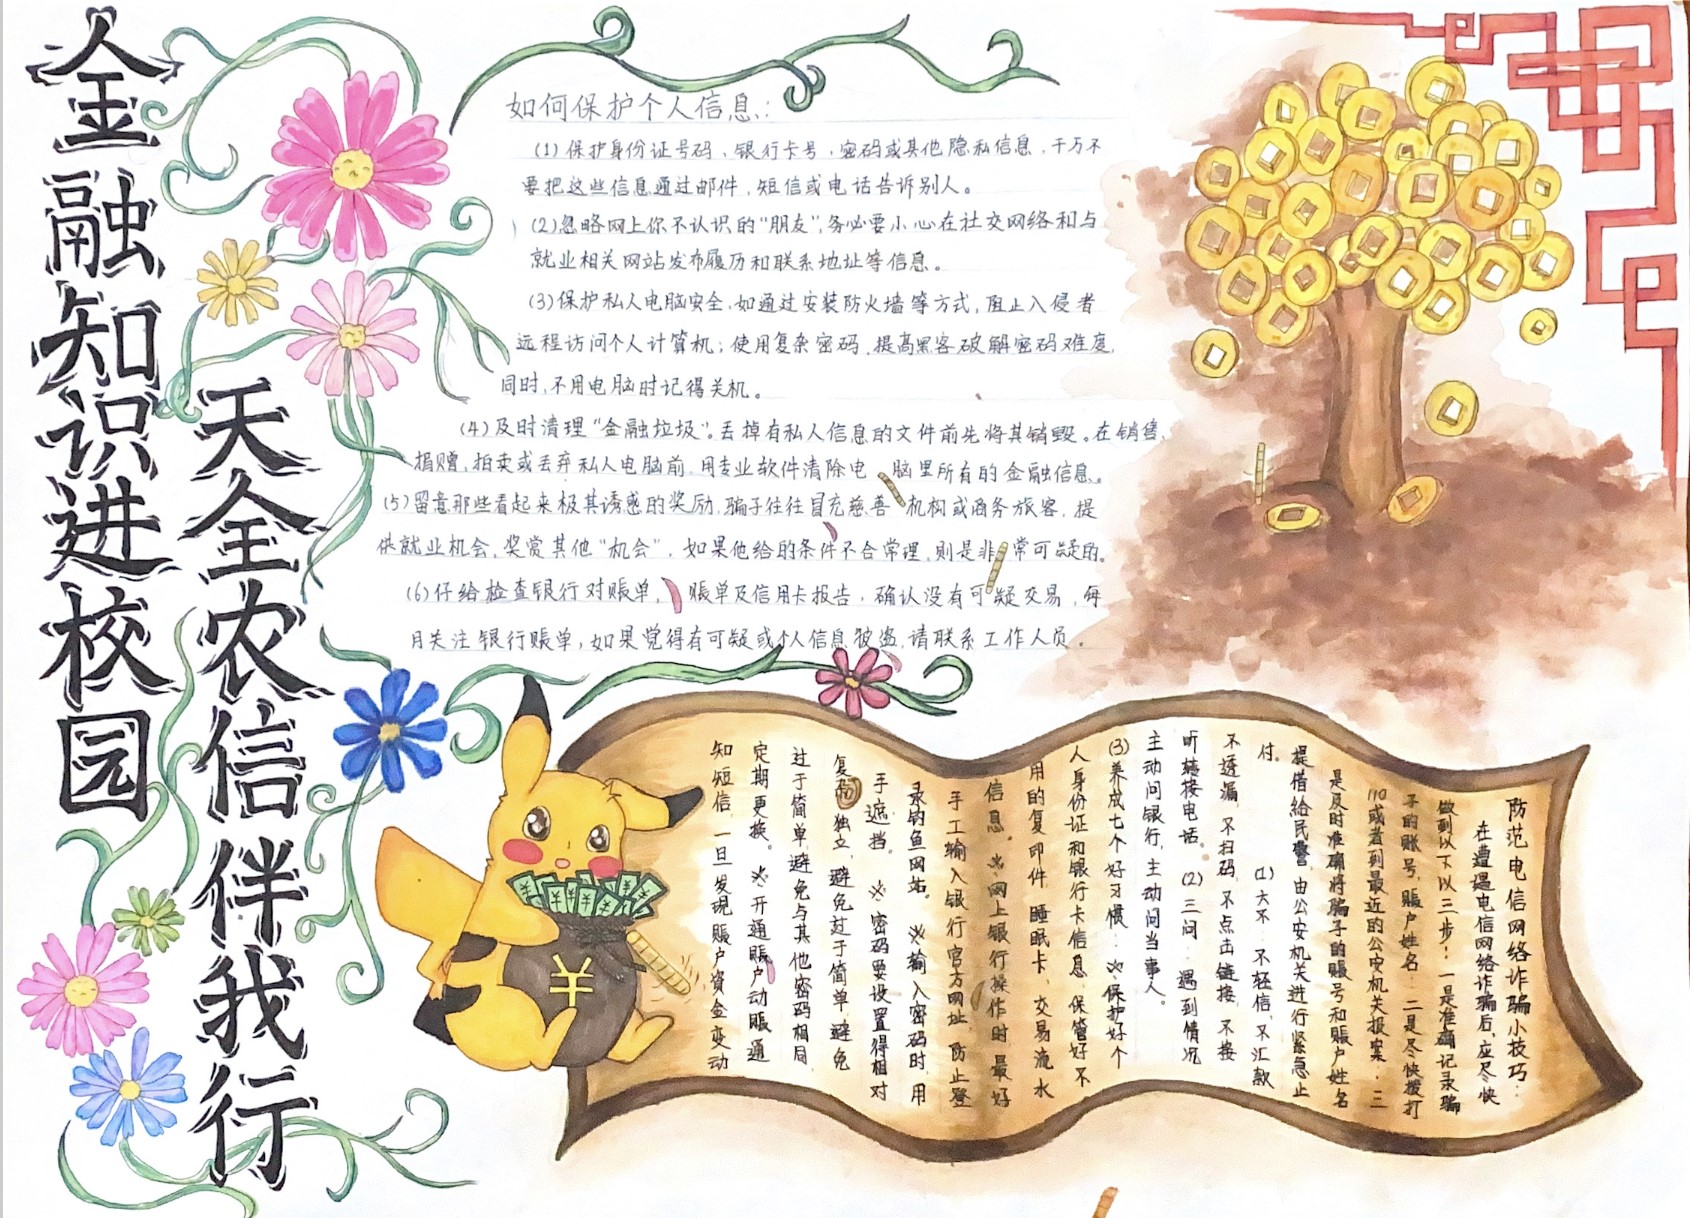 金融知识进校园
天全农信伴我行
如何保护个人信息:
(1)保护身份证号码、银行卡号、密码或其他隐私信息,千万不
要把这些信息通过邮件,短信或电话告诉别人。
(2)忽略网上你不认识的“朋友”,务必要小心在社交网络和与
就业相关网站发布履历和联系地址等信息。
(3)保护私人电脑安全,如通过安装防火墙等方式,阻止入侵者
远程访问个人计算机;使用复杂密码,提高黑客破解密码难度,
同时,不用电脑时记得关机。
(4)及时清理“金融垃圾”。丢掉有私人信息的文件前先将其销毁。在销售、
捐赠,拍卖或丢弃私人电脑前,用专业软件清除电脑里所有的金融信息。
(5)留意那些看起来极其诱惑的奖励,骗子往往冒充慈善机构或商务旅客,提
供就业机会,奖赏其他“机会”,如果他给的条件不合常理,则是非常可疑的。
(6)仔给检查银行对账单,账单及信用卡报告,确认没有可疑交易,每
月关注银行账单,如果觉得有可疑或个人信息被盗,请联系工作人员。
防范电信网络诈骗小技巧:
在遭遇电信网络诈骗后,应尽快
做到以下以三步:一是准确记录骗
子的账号,账户姓名 二是尽快拨打
110或者到最近的公安机关报案 三
是及时准确将骗子的账号和账户姓名
提借给民警,由公安机关进行紧急止
付。 (1)大不 不轻信,不汇款
不透漏,不扫码,不点击链接,不接
听转接电话。(2)三问 遇到情况
主动问银行,主动问当事人。
(3)养成七个好习惯:※保护好个
人身份证和银行卡信息,保管好不
用的复印件,睡眠卡,交易流水
信息。※网上银行操作时,最好
手工输入银行官方网址,防止登
录钓鱼网站。※输入密码时,用
手遮挡。※密码要设置得相对
复杂独立,避免过于简单,避免
过于简单,避免与其他密码相同,
定期更换。※开通账户动账通
知短信,一旦发现账户资金变动